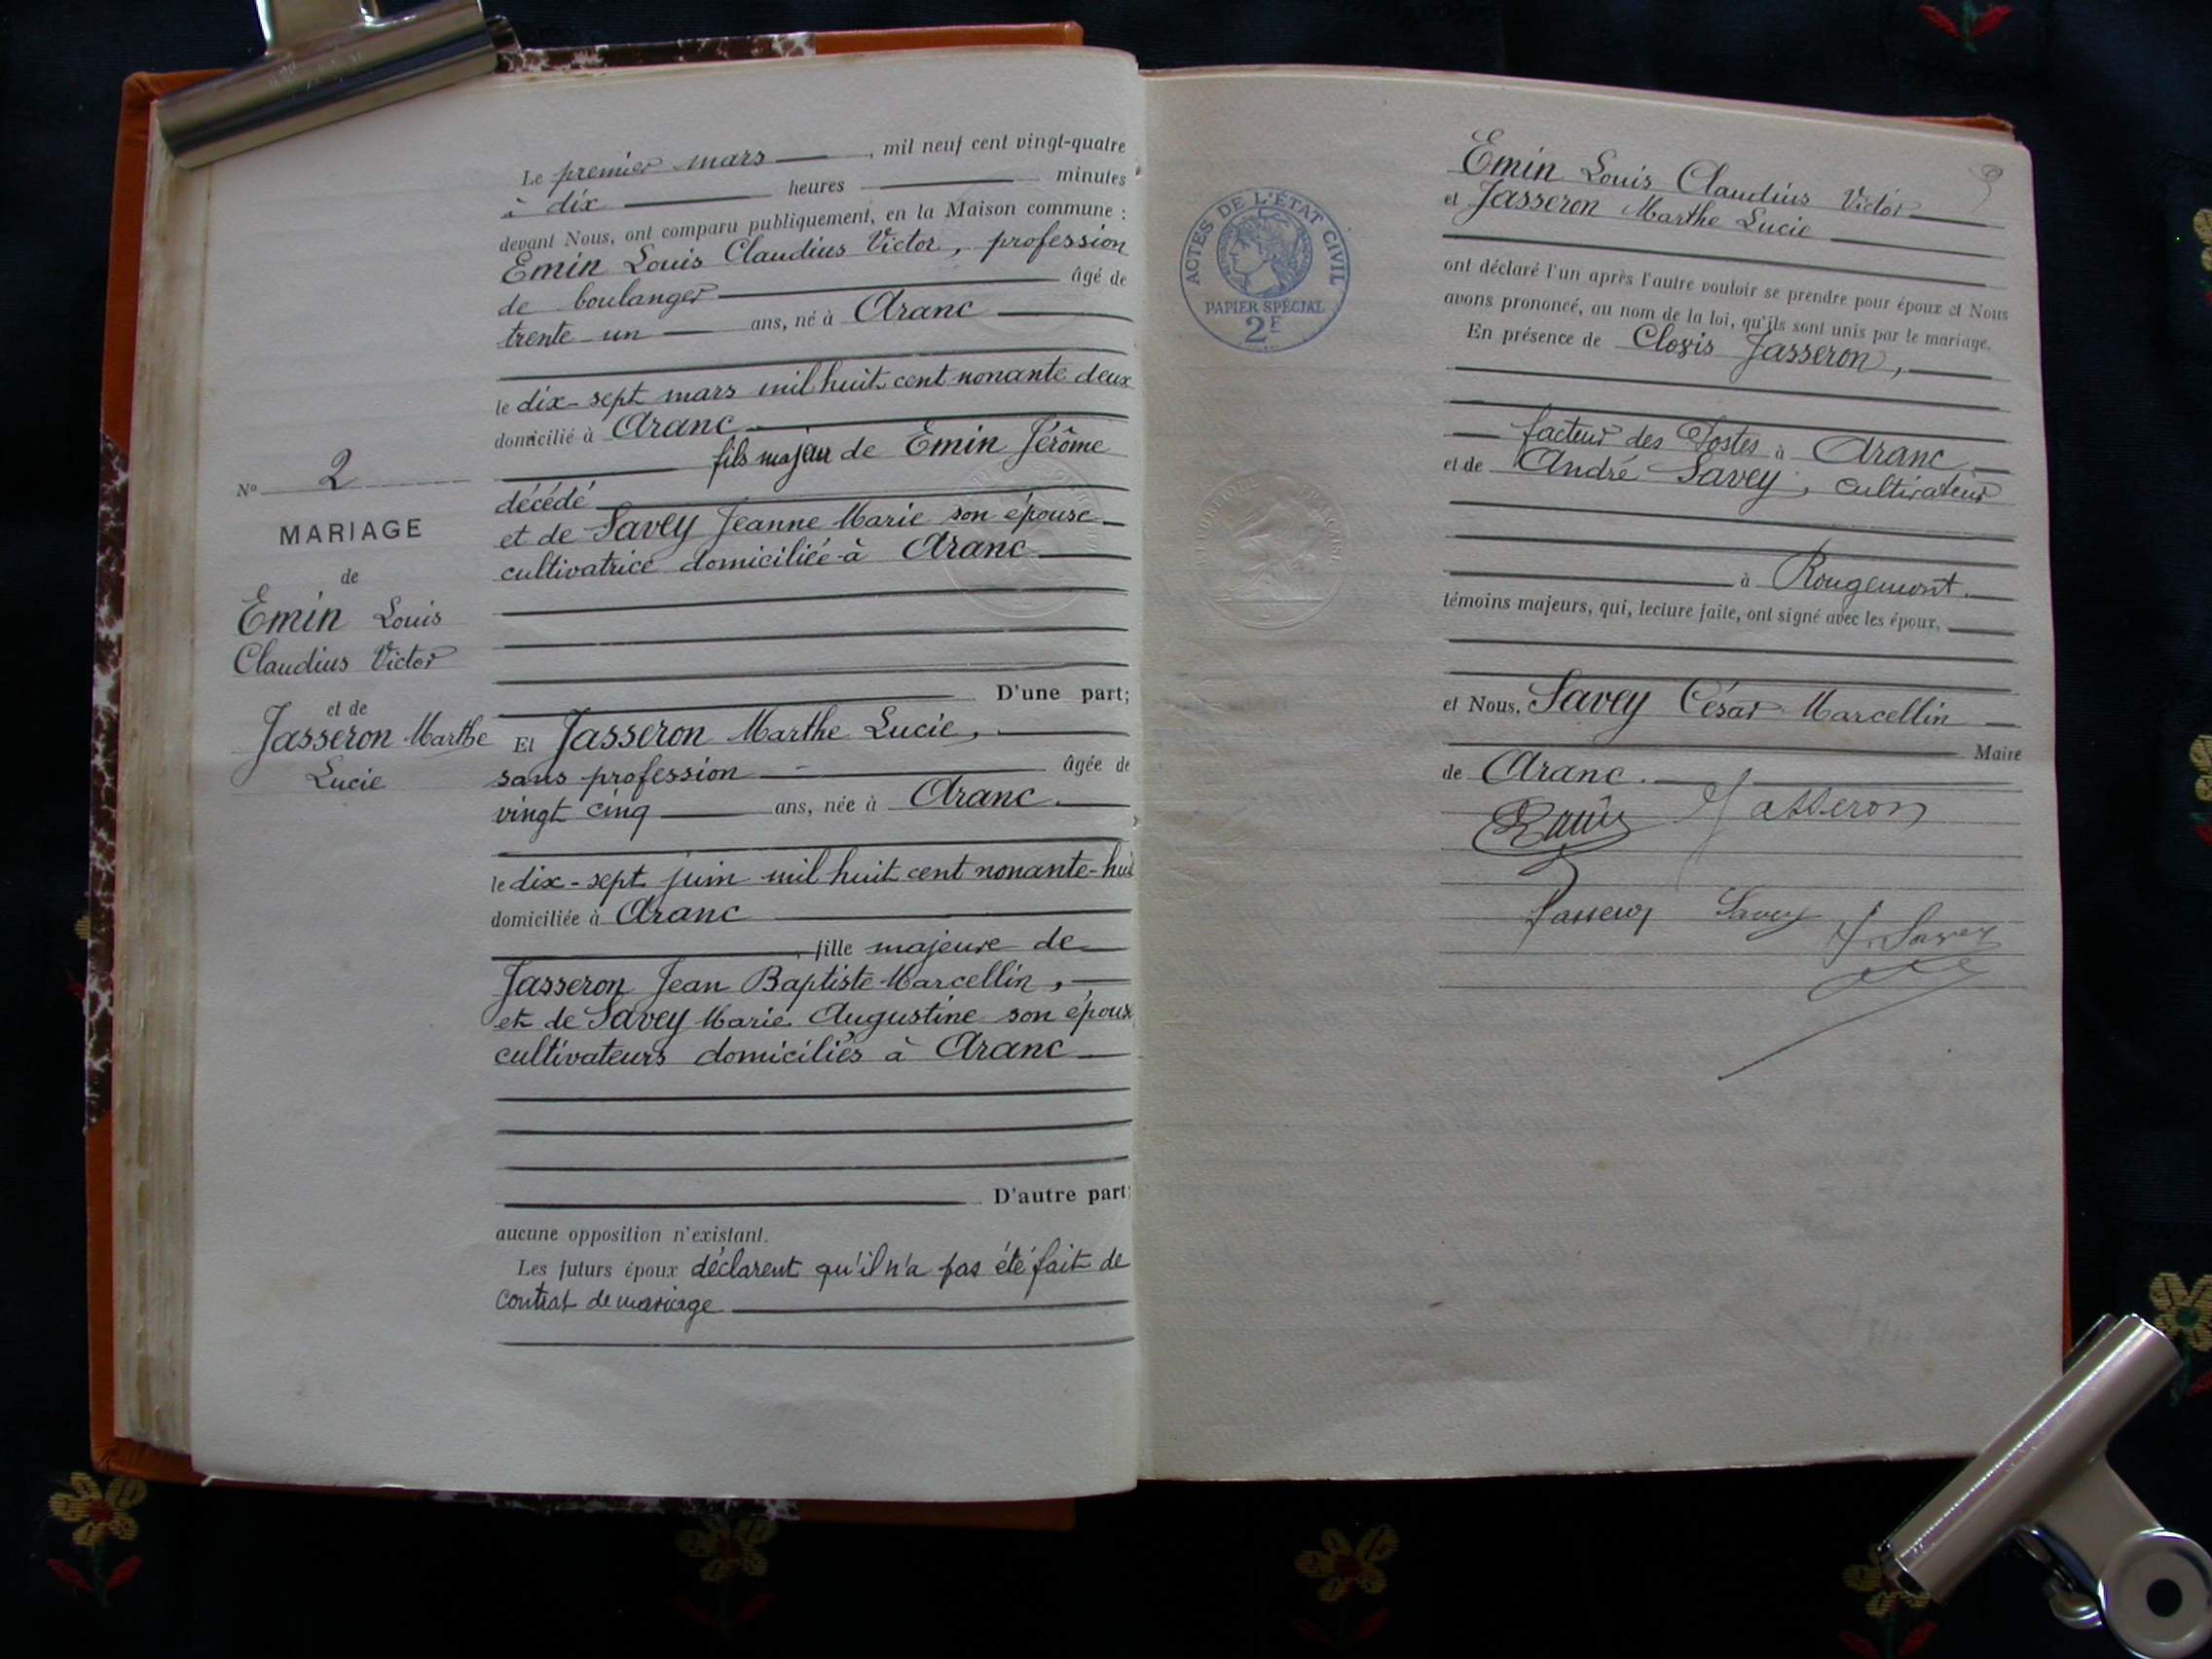 Le premier mars, mil neuf cent vingt-quatre
à dix heures minutes
devant Nous, ont comparu publiquement, en la Maison commune :
Emin Louis Claudius Victor, profession
de boulanger âgé de
trente-un ans, né à Aranc
le dix-sept mars mil huit cent nonante deux
domicilié à Aranc
fils majeur de Emin Jérôme
décédé
et de Savey Jeanne Marie son épouse
cultivatrice domiciliée à Aranc
D'une part;
Et Jasseron Marthe Lucie,
sans profession âgée de
vingt cinq ans, née à Aranc.
le dix-sept juin mil huit cent nonante-huit
domiciliée à Aranc
, fille majeure de
Jasseron Jean Baptiste Marcellin,
et de Savey Marie Augustine son époux
cultivateurs domiciliés à Aranc
D'autre part;
aucune opposition n'existant.
Les futurs époux déclarent qu'il n'a pas été fait de
contrat de mariage
No 2
MARIAGE
de
Emin Louis
Claudius Victor
et de
Jasseron Marthe
Lucie
ACTES DE L'ÉTAT CIVIL
PAPIER SPÉCIAL
2F
Emin Louis Claudius Victor
et Jasseron Marthe Lucie
ont déclaré l'un après l'autre vouloir se prendre pour époux et Nous
avons prononcé, au nom de la loi, qu'ils sont unis par le mariage.
En présence de Clovis Jasseron,
facteur des Postes à Aranc
et de André Savey, cultivateur
à Rougemont.
témoins majeurs, qui, lecture faite, ont signé avec les époux.
et Nous, Savey César Marcellin
Maire
de Aranc.
Emin Jasseron
Jasseron Savey
Savey